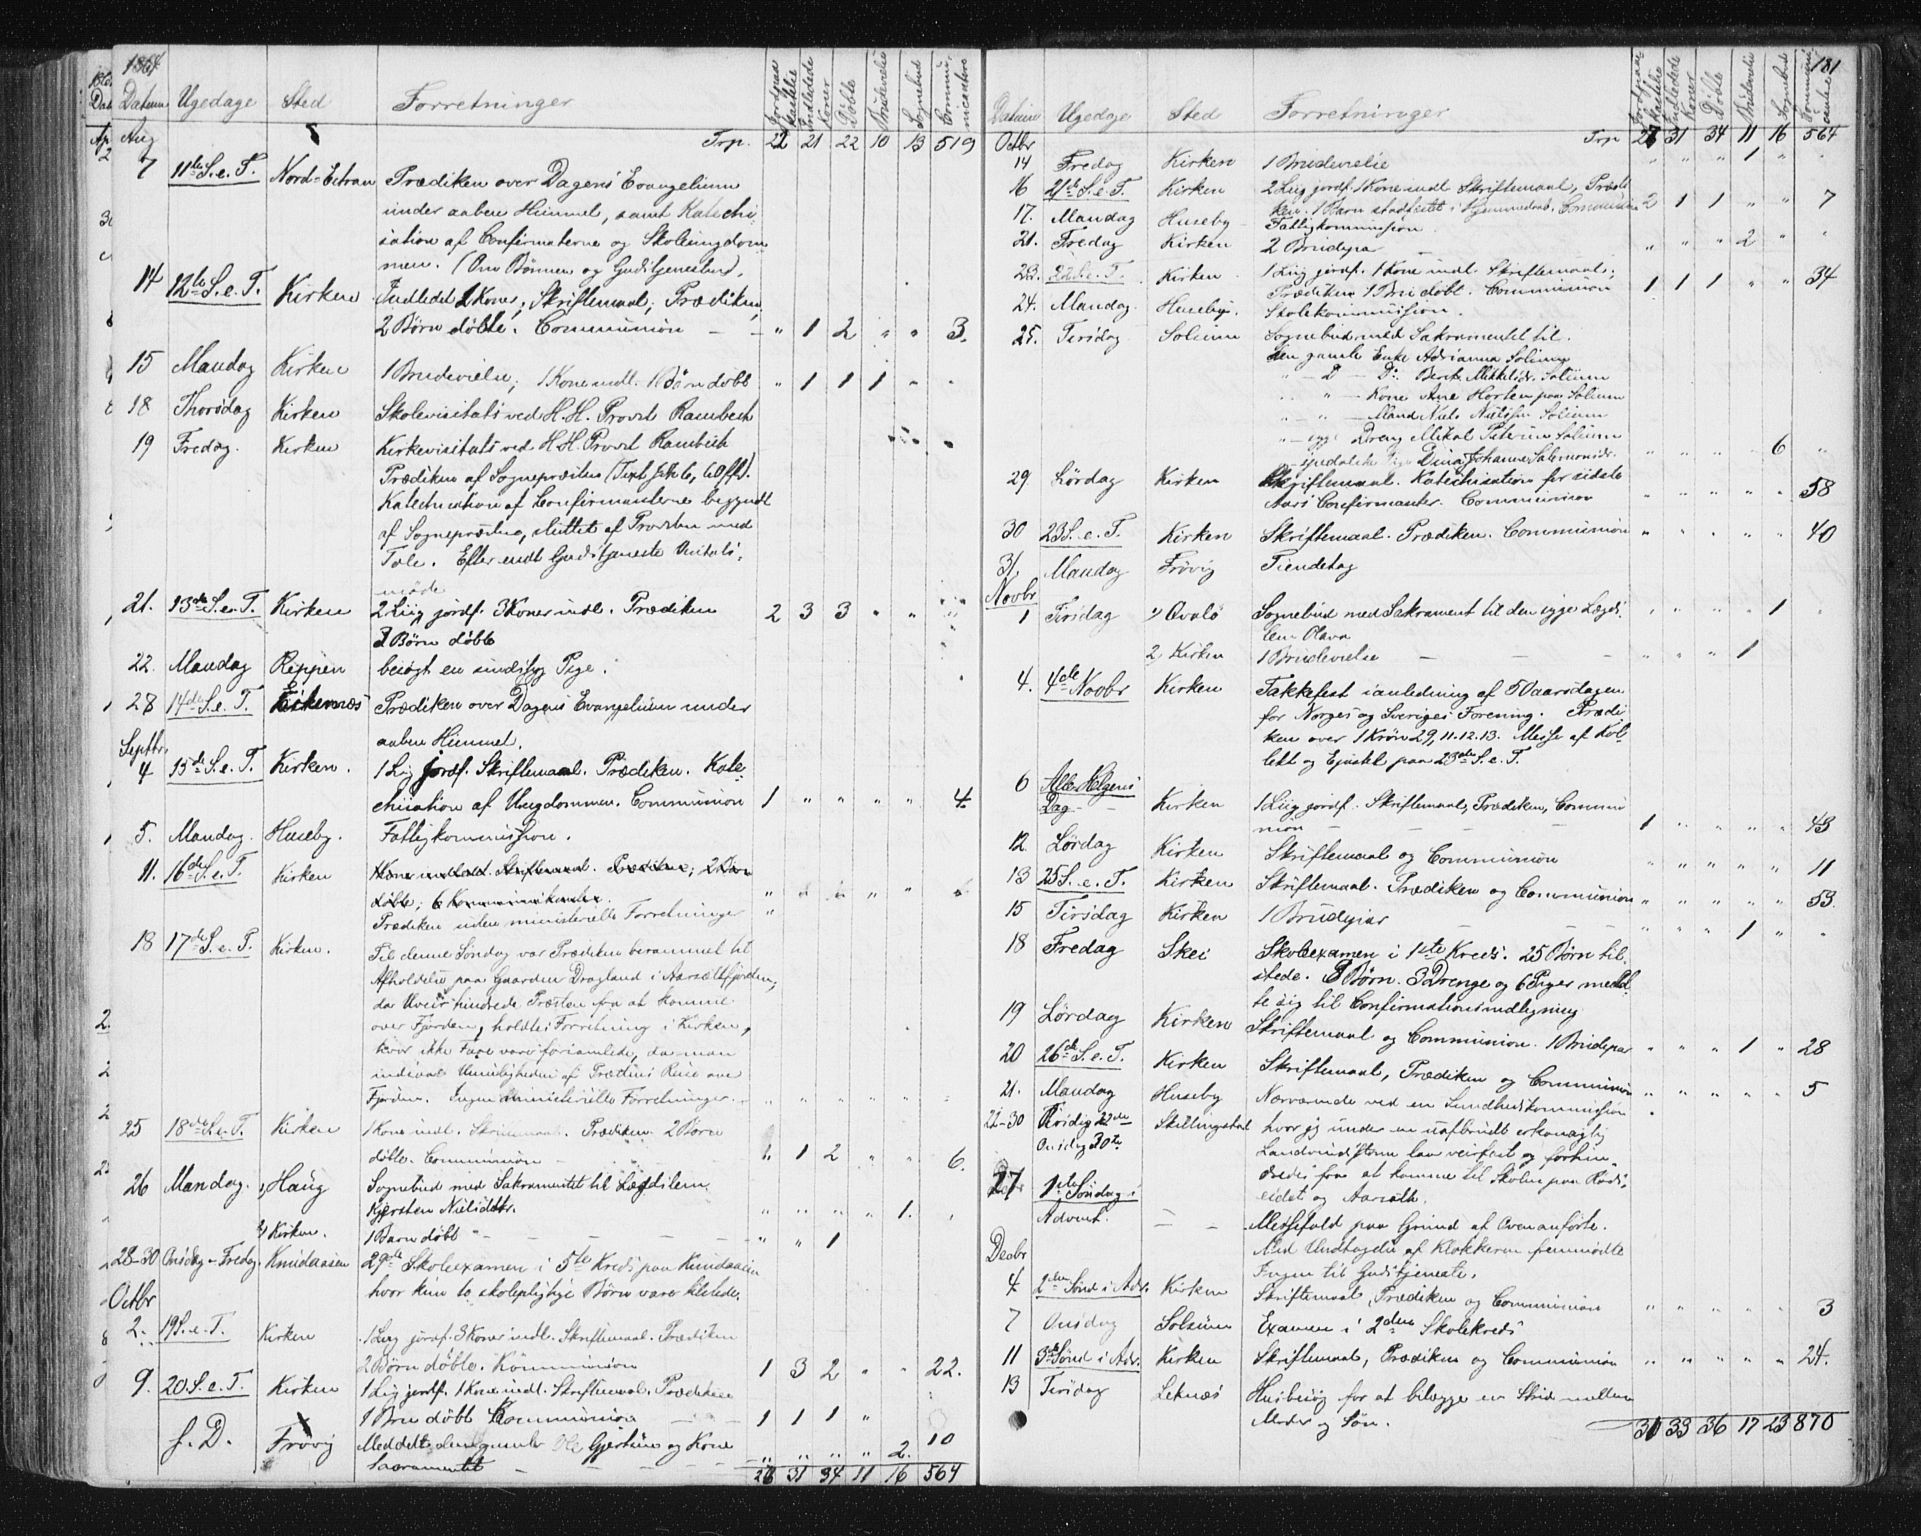 1864
Datum Ugedage Sted Forretninger Jordpaa kastelse Indledede Koner Döbte Brudevielse Sognebud Communicantere
Aug Trp. 22 21 22 10 13 519
7 11te S. e. T. Nord-Eitran Prædiken over Dagens Evangelium
under aaben Himmel, samt Katechi-
sation af Confirmaterne og Skoleungdom-
men. (Om Bönnen og Gudstjenesten).
14 12te S. e. T. Kirken Indledet 1 Kone, Skriftemaal, Prædiken,
2 Börn döbte. Communion — " 1 2 " " 3.
15 Mandag Kirken 1 Brudevielse; 1 Kone indl. 1 Börn döbt " 1 1 1 " "
18 Thorsdag Kirken Skolevisitats ved H. H. Provst Rambech
19 Fredag. Kirken Kirkevisitats ved H. H. Provst Rambech
Prædiken af Sognepræsten (Text Joh. 6, 60 ff).
Katechisation af Confirmanterne begyndt
af Sognepræsten, sluttet af Provsten med
Tale. Efter endt Gudstjeneste Visitats-
möde
21. 13de S. e. T. Kirken 2 Liig jordf. 3 Koner indl. Prædiken 2 3 3 " " "
3 Börn döbte
22. Mandag Reppen besögt en sindssyg Pige.
28 14de S. e. T. Eikernæs Prædiken over Dagens Evangelium under
aaben Himmel.
Septbr.
4 15de S. e. T. Kirken. 1 Lig jordf. Skriftemaal. Prædiken. Kate-
chisation af Ungdommen. Communion 1 " " " " 4
5. Mandag. Huseby. Fattigkommission.
11. 16de S. e. T. Kirken 1 Kone indledet. Skriftemaal. Prædiken; 2 Börn
döbte; 6 Kommunikanter.
Prædiken uden ministerielle Forretninger "
18 17de S. e. T. Kirken. Til denne Söndag var Prædiken berammet til
Afholdelse paa Gaarden Dragland i Aarsætfjorden,
da Uveir hindrede Præsten fra at komme
over Fjorden, holdtes Forretning i Kirken,
hvor ikke Faae vare forsamlede, da man
indsaae Umuligheden af Præstens Reise over
Fjorden. Ingen ministerielle Forretninger. — " " " " " "
25 18de S. e. T. Kirken 1 Kone indl. Skriftemaal. Prædiken 2 Börn
döbte. Communion — " 1 2 " " 6.
26 Mandag. 1) Haug Sognebud med Sakramentet til Lægdslem
Kjersten Nielsdatr. " " " " 1. "
2) Kirken. 1 Barn döbt — " " 1
28-30 Onsdag-Fredag. Knudaasen 29de Skoleexamen i 5te Kreds paa Knudaasen
hvor kun to skolepligtige Börn vare tilstede.
Octbr
2. 19 S. e. T. Kirken 1 Lig jordf. 3 Koner indl. Skriftemaal. Prædiken
2 Börn döbte. Kommunion 1 3 2 " " 22.
9. 20 S. e. T. Kirken 1 Lig jordf. 1 Kone indl. Skriftemaal. Prædiken
1 Brn döbt Kommunion 1 1 1 "
s. D. Frövig Meddelte den gamle Ole Gjertsen og Kone 10
Sacramentet — " " " " 2.
26 31 34 11 16 564
181
Datum Ugedage Sted Forretninger Jordpaakastelse Indledede Koner Döbte Brudevielse Sognebud Communicantere
Octbr Trp 26 31 34 11 16 564
14 Fredag Kirken 1 Brudevielse " " " 1 " "
16 21de S. e. T. Kirken 2 Liig jordf. 1 Kone indl. Skriftemaal, Prædi-
ken. 1 Barn stadfæstet i Hjemmedaab. Communion 2 1 1 " " 7
17. Mandag Huseby Fattigkommission.
21. Fredag Kirken 2 Brudepar " " " 2 " "
23. 22 S. e. T. Kirken 1 Liig jordf. 1 Kone indl. Skriftemaal.
Prædiken 1 Brn döbt. Communion 1 1 1 " " 34
24. Mandag Huseby. Skolekommission.
25. Tirsdag Solsem Sognebud med Sakramentet til.
den gamle Enke Adrianna Solsem
" — D — Do: Berit Mikkelsdr. Solsem
" " — Kone Ane Horten paa Solsem
" " — Mand Niels Nielssen Solsem
" — syge Dreng Mikal Petersen Solsem
— spedalske Pige Dina Johanne Salomonsdr. " " " " 6 "
29 Lördag Kirken Skriftemaal. Katechisation for sidste
Aars Confirmanter. Communion " " " " " 58
30 23 S. e. T. Kirken Skriftemaal. Prædiken. Communion " " " " " 40
31. Mandag Frövig Tiendetag
Novbr
1 Tirsdag 1) Ovalö Sognebud med Sakrament til den syge Lægds- " " " " 1 "
lem Olava
2) Kirken 1 Brudevielse — — — " " " 1
4. 4de Novbr Kirken Takkefest i anledning af 50 aarsdagen
for Norges og Sveriges Forening. Prædi-
ken over 1 Krön 29, 11.12.13. Messe af Kol-
lekt og Epistel paa 23de S. e. T.
6 Alle Helgens
Dag Kirken 1 Liig jordf. Skriftemaal, Prædiken, Commu-
nion — — — 1 " " " " 43
12 Lördag Kirken Skriftemaal og Communion " " " " " 11
13 25 S. e. T. Kirken Skriftemaal. Prædiken og Communion " " " " " 53.
15 Tirsdag Kirken 1 Brudepar — — " " " 1 " "
18 Fredag Skei Skoleexamen i 1ste Kreds. 25 Börn til-
stede. 9 Börn. 3 Drenge og 6 Piger meld-
te sig til Confirmationsindlysning
19 Lördag Kirken Skriftemaal og Communion. 1 Brudepar " " " 1 " 28
20 26de S. e. T. Kirken Skriftemaal, Prædiken og Communion " " " " " 5
21. Mandag Huseby Nærværende ved en Sundhedskommission
22-30 Tirsdag 22de — Skillingstad hvor jeg under en uafbrudt orkanagtig
Onsdag 30te Landvindsstorm laae veirfast og forhin-
dredes fra at komme til Skolen paa Rods-
eidet og Aarsæth.
27 1ste Söndag i
Advent. — — Messefald paa Grund af Ovenanförte.
Med Undtagelse af Klokkeren fremmödte
Ingen til Gudstjeneste.
Decbr
4 2den Sönd i Adv. Kirken Skriftemaal, Prædiken og Communion " " " " " 3
7 Onsdag Solsem Examen i 2den Skolekreds
11 3die Sönd i Adv. Kirken Skriftemaal, Prædiken og Communion " " " " " 24.
13 Tirsdag Leknæs Husbesög for at bilægge en Strid mellem
Moder og Sön.
31 33 36 17 23 870